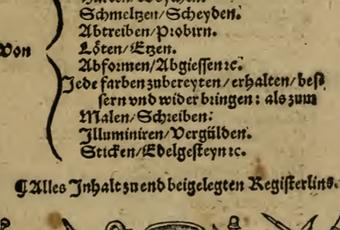 Schmeltzen/Scheyden.
Abtreiben/Probirn.
Von
Löten/Etzen.
Abformen/Abgiessen ꝛc.
Jede farben zubereyten/erhalten/bess
sern vnd wider bringen: als zum
Malen/Schreiben.
Jlluminiren/Vergülden.
Sticken/Edelgesteyn ꝛc.
¶ Alles Jnhalt zu end beigelegten Registerlins.